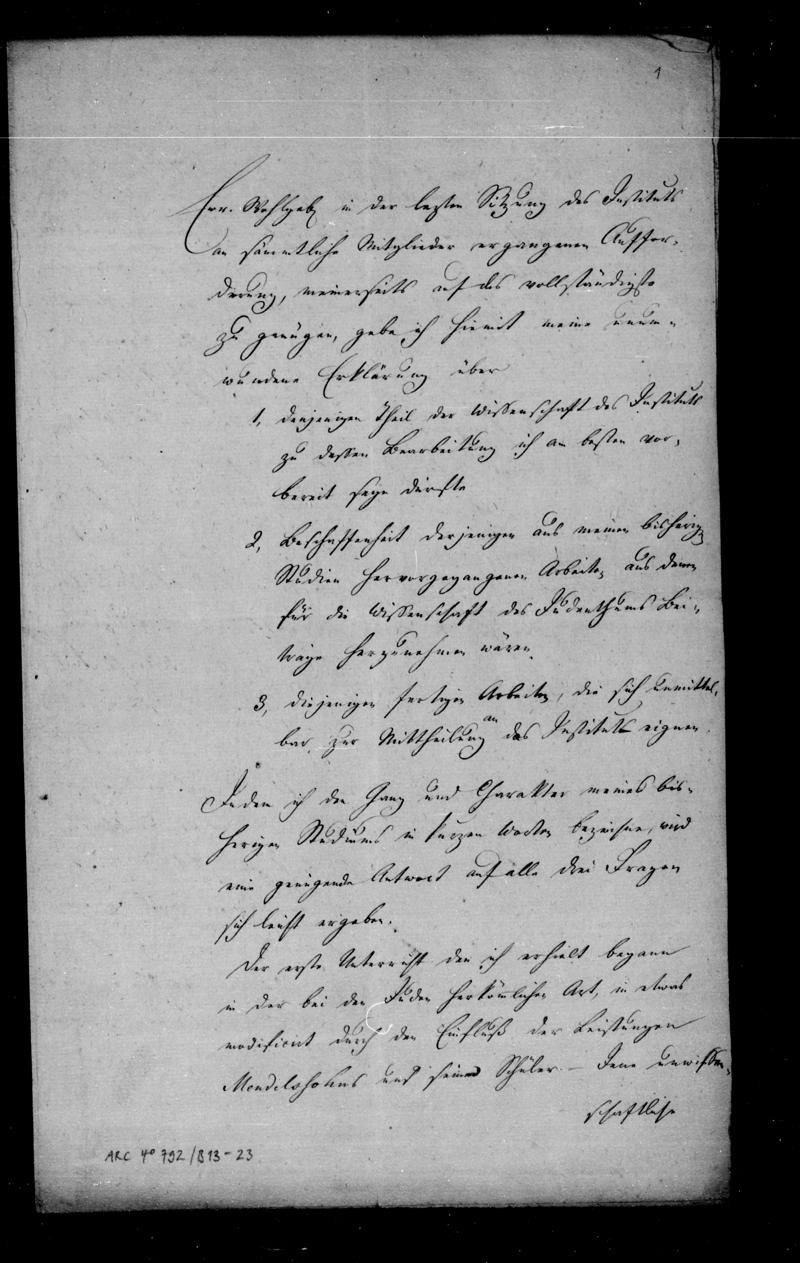 1
Ew. Wohlgeb in der letzten Sitzung des Instituts
an sämmtliche Mitglieder ergangenen Auffor-
derung, meinerseits auf das vollständigste
zu genügen, gebe ich hiemit meine unum-
wundene Erklärung über
1, denjenigen Theil der Wissenschaft des Instituts
zu dessen Bearbeitung ich am besten vor-
bereit seyn dürfte
2, Beschaffenheit derjenigen aus meinen bisherig
Studien hervorgegangenen Arbeiten aus denen
für die Wissenschaft des Judenthums Bei-
träge herzunehmen wären.
3, diejenigen fertigen Arbeiten, die sich unmittel-
bar zur Mittheilung an das Institut eignen.
Indem ich den Gang und Charakter meines bis-
herigen Studiums in kurzen Worten bezeichne, wird
eine genügende Antwort auf alle drei Fragen
sich leicht ergeben.
Der erste Unterricht den ich erhielt begann
in der bei den Juden herkömlichen Art, in etwas
modificirt durch den Einfluß der Leistungen
Mendelsohns und seiner Schüler – Jene unwissen-
schaftliche
ARC 4° 792/B13-23